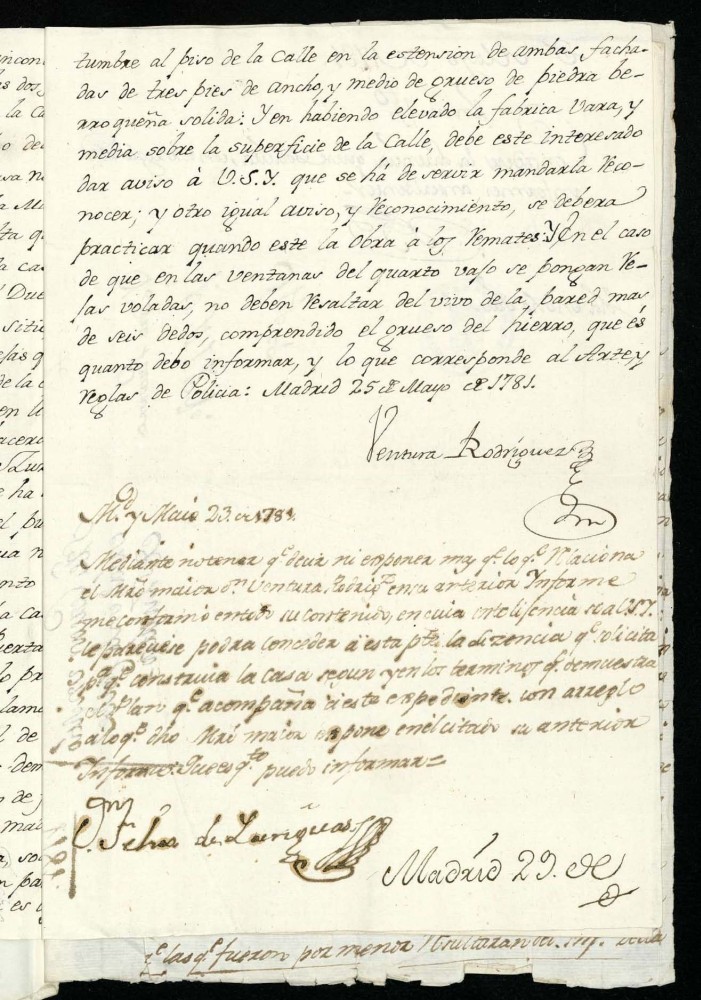 tumbre al piso de la Calle en la estension de ambas facha-
das de tres pies de ancho, y medio de grueso de piedra be-
rroqueña solida: Y en habiendo elevado la fabrica vara, y
media sobre la superficie de la Calle, debe este interesado
dar aviso à V.S.Y. que se há de servir mandarla reco-
nocer; y otro igual aviso, y reconocimiento, se debera
practicar quando este la Obra à los remates: Y en el caso
de que en las ventanas del quarto vajo se pongan re-
jas voladas, no deben resaltar del vivo de la pared mas
de seis dedos, comprendido el grueso del hierro, que és
quanto debo informar, y lo que corresponde al Arte, y
reglas de Policia: Madrid 25 de Mayo de 1781.
Ventura Rodriguez
M.d y Maio 23. de 1781.
Mediante no tener q.e decir ni exponer mas q.e lo q.e relaciona
el Mro maior d.n Ventura Rodrig.z en su anterior Informe
me conformo en todo su contenido, en cuia intelisencia si a V.S.Y.
le pareciese podra conceder à esta p.te la lizencia q.e solicita
p.a q.e construia la casa segun y en los terminos q.e demuestra
el Plan q.e acompaña à este expediente. con arreglo
a lo q.e dho Mro maior expone en el citado su anterior
Informe. Que es q.to puedo informar=
de
Madrid 29. de
q.e las q.e fueron por menor resultaran del Inf.